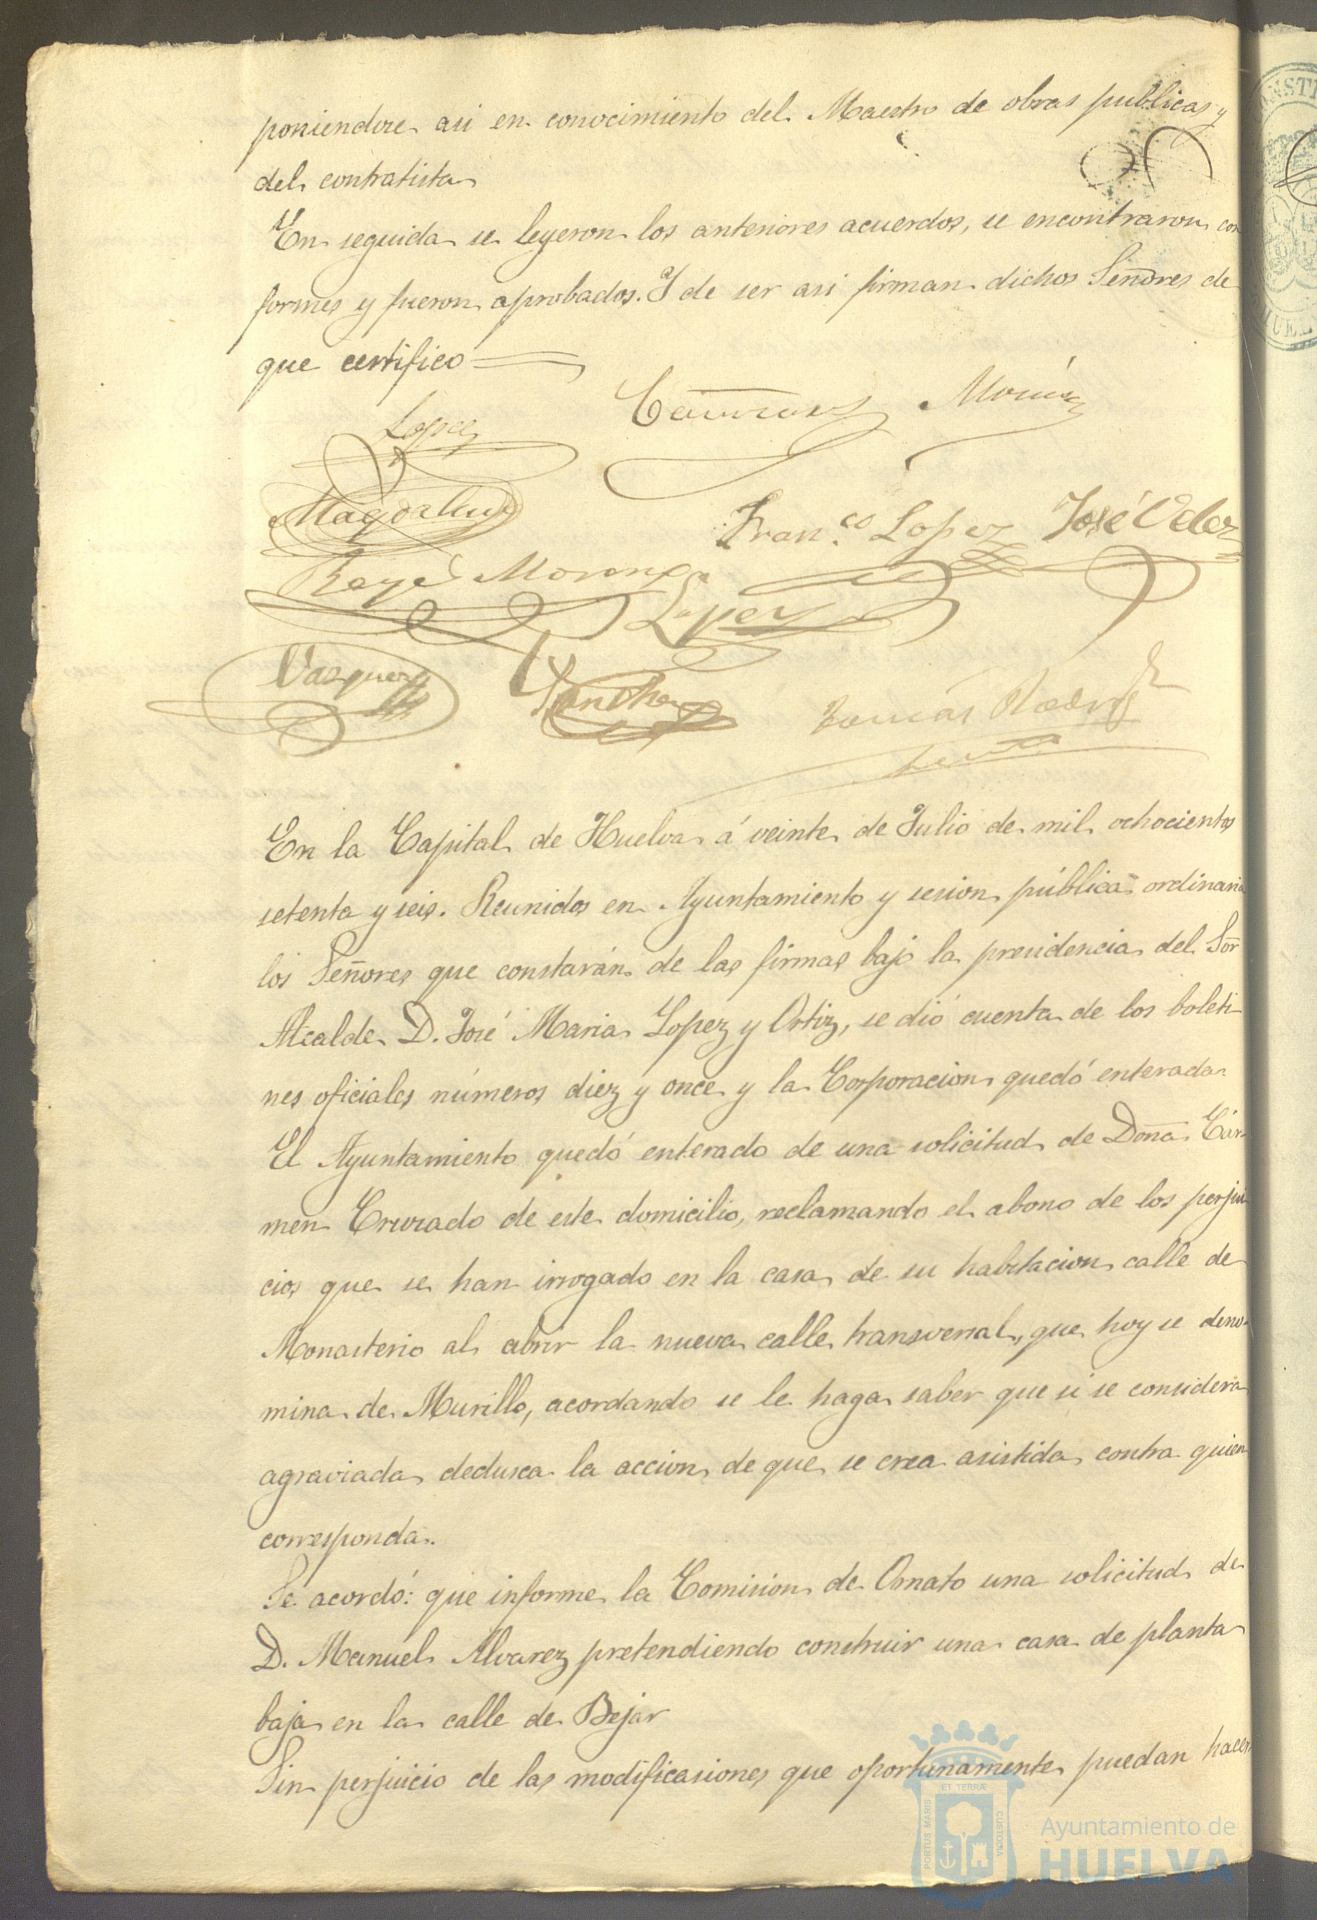 poniendose asi en conocimiento del Maestro de obras publicas y
del contratista
En seguida se leyeron los anteriores acuerdos, se encontraron con
formes y fueron aprobados. Y de ser asi firman dichos Señores de
que certifico
Lopez
Morión
Magdalena
Fran.co Lopez José Velez
Lopez
Vazquez
Sanchez
Tomás Rodrig
En la Capital de Huelva á veinte de Julio de mil ochocientos
setenta y seis. Reunidos en Ayuntamiento y sesion pública ordinaria
los Señores que constarán de las firmas bajo la presidencia del Sor
Alcalde D. José Maria Lopez y Ortiz, se dió cuenta de los boleti-
nes oficiales números diez y once y la Corporacion quedó enterada
El Ayuntamiento quedó enterado de una solicitud de Doña Cár-
men Cruzado de este domicilio, reclamando el abono de los perjui
cios que se han irrogado en la casa de su habitacion calle de
Monasterio al abrir la nueva calle transversal, que hoy se deno-
mina de Murillo, acordando se le haga saber que si se considera
agraviada deduzca la accion de que se crea asistida contra quien
corresponda.
Se acordó: que informe la Comision de Ornato una solicitud de
D. Manuel Alvarez pretendiendo construir una casa de planta
baja en la calle de Bejar
Sin perjuicio de las modificasiones que oportunamente puedan hacer
PORTUS MARIS ET TERRÆ CUSTODIA
Ayuntamiento de
HUELVA